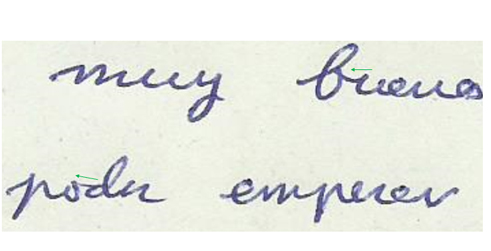 muy buenos
poder empezar